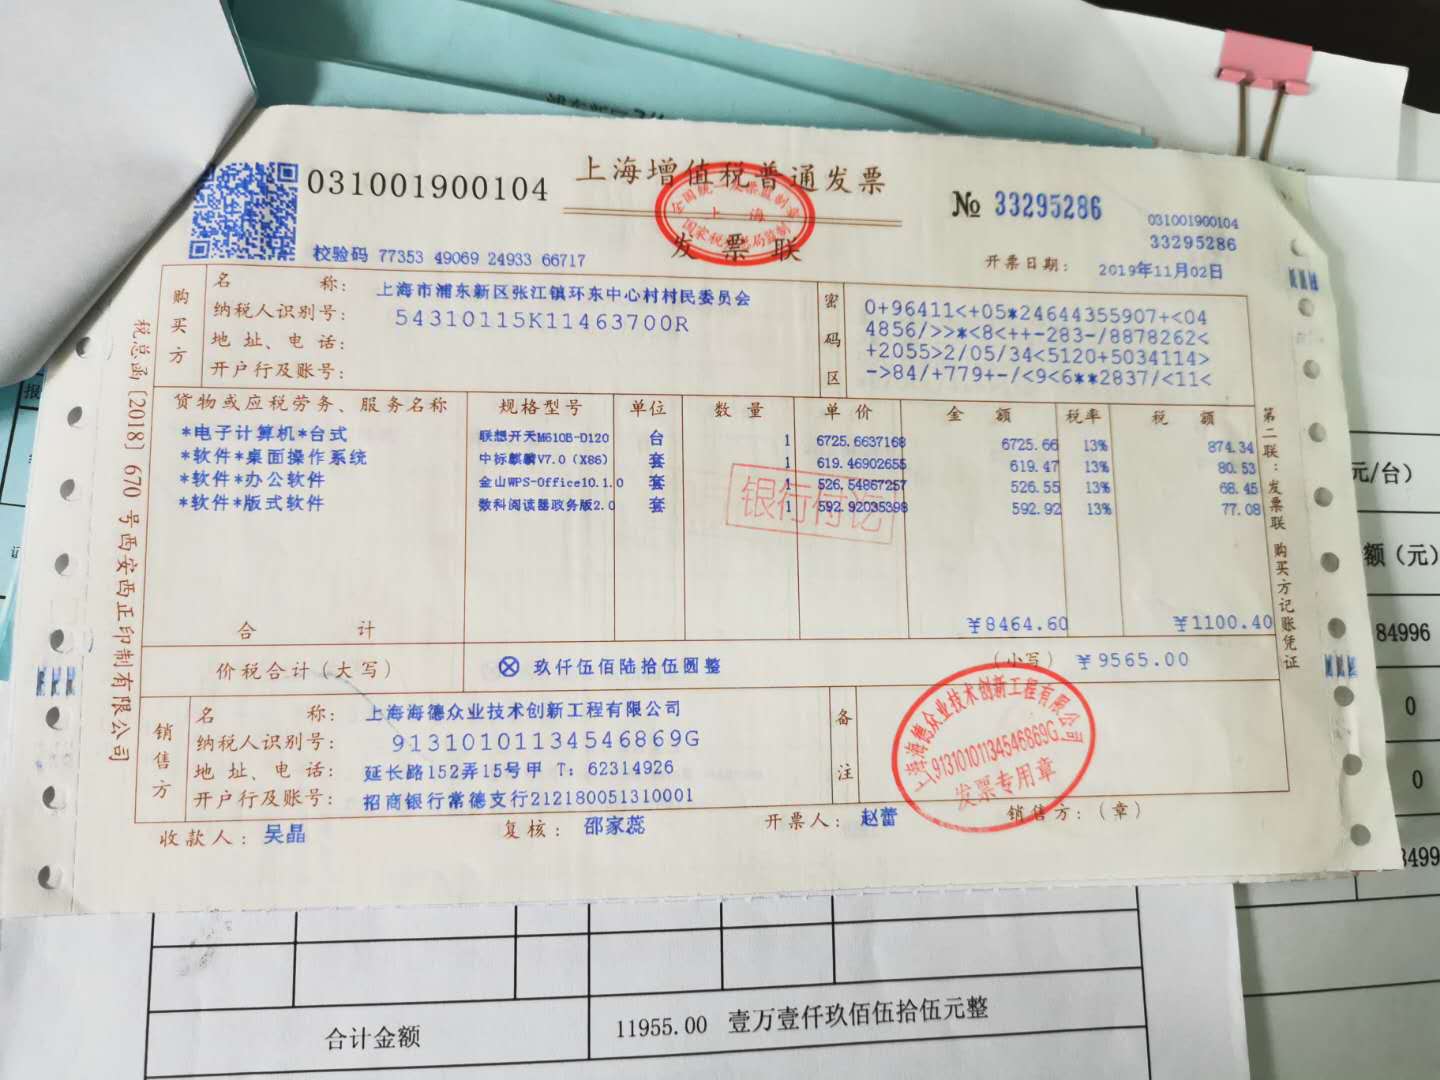 031001900104
上海增值税普通发票
全国统一发票监制章
上海
国家税务总局监制
发票联
№ 33295286
031001900104
33295286
校验码 77353 49069 24933 66717
开票日期： 2019年11月02日
购买方
名 称： 上海市浦东新区张江镇环东中心村村民委员会
纳税人识别号： 54310115K11463700R
地 址、电 话：
开户行及账号：
密码区
0+96411<+05*24644355907+<04
4856/>>*<8<++-283-/8878262<
+2055>2/05/34<5120+5034114>
->84/+779+-/<9<6**2837/<11<
货物或应税劳务、服务名称 规格型号 单位 数 量 单 价 金 额 税率 税 额
*电子计算机*台式 联想开天M610B-D120 台 1 6725.6637168 6725.66 13% 874.34
*软件*桌面操作系统 中标麒麟V7.0（X86） 套 1 619.46902655 619.47 13% 80.53
*软件*办公软件 金山WPS-Office10.1.0 套 1 526.54867257 526.55 13% 68.45
*软件*版式软件 数科阅读器政务版2.0 套 1 592.92035398 592.92 13% 77.08
银行付讫
合 计 ￥8464.60 ￥1100.40
价税合计（大写） ⊗ 玖仟伍佰陆拾伍圆整 （小写） ￥9565.00
销售方
名 称： 上海海德众业技术创新工程有限公司
纳税人识别号： 91310101134546869G
地 址、电 话： 延长路152弄15号甲 T：62314926
开户行及账号： 招商银行常德支行212180051310001
备注
上海海德众业技术创新工程有限公司
91310101134546869G
发票专用章
收款人： 吴晶 复核： 邵家蕊 开票人： 赵蕾 销售方：（章）
税总函〔2018〕670 号西安西正印制有限公司
第二联：发票联 购买方记账凭证
元/台）
额（元）
84996
0
0
合计金额 11955.00 壹万壹仟玖佰伍拾伍元整